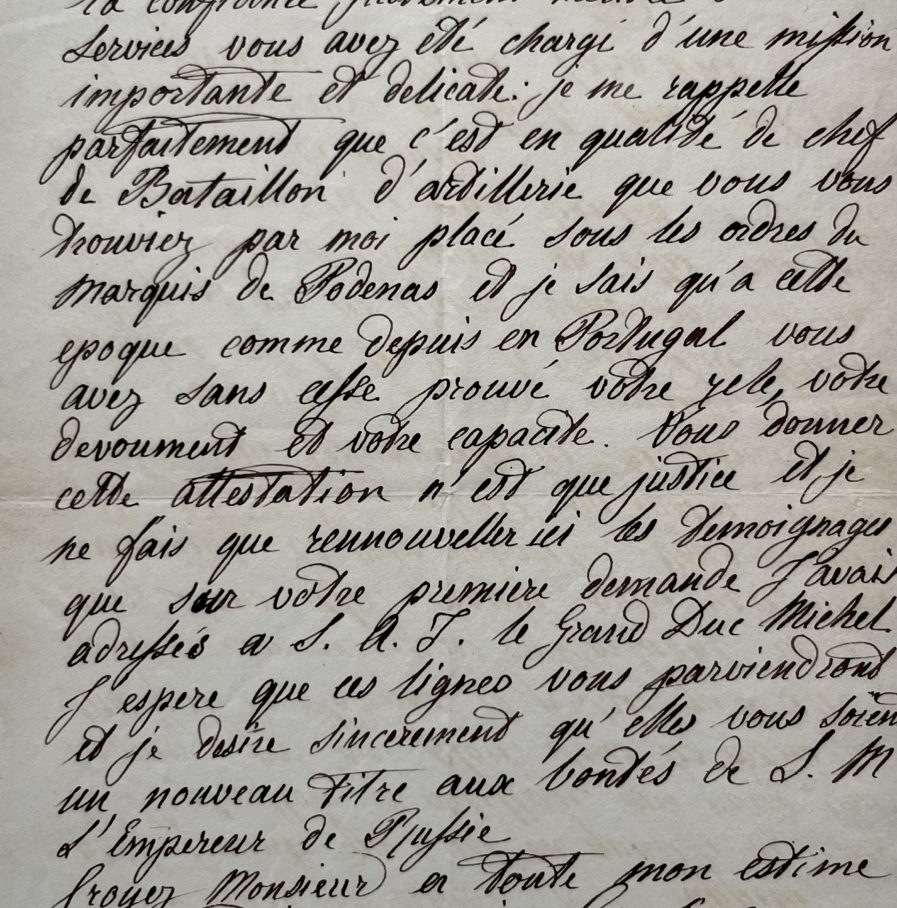 la confiance
services vous avez été chargé d'une mission
importante et delicate: je me rappelle
parfaitement que c'est en qualité de chef
de Bataillon d'artillerie que vous vous
trouviez par moi placé sous les ordres du
Marquis de Podenas et je sais qu'a cette
epoque comme depuis en Portugal vous
avez sans cesse prouvé votre zele, votre
devoument et votre capacite. Vous donner
cette attestation n'est que justice et je
ne fais que rennouveller ici les temoignages
que sur votre premiere demande J'avais
adressés a S. A. I. le Grand Duc Michel
J'espere que ces lignes vous parviendront
et je desire sincerement qu'elles vous soient
un nouveau titre aux bontés de S. M
L'Empereur de Russie
Croyez Monsieur a toute mon estime